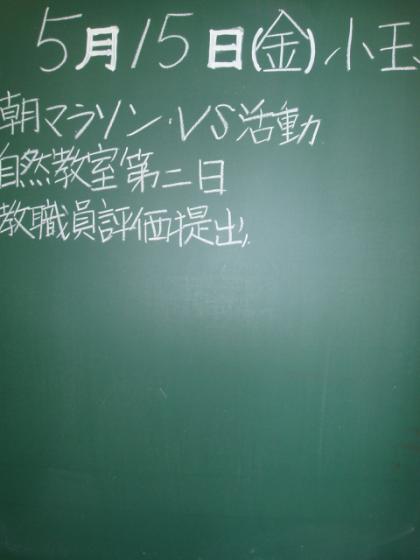 5月15日(金)小玉
朝マラソン・VS活動
自然教室第二日
教職員評価提出